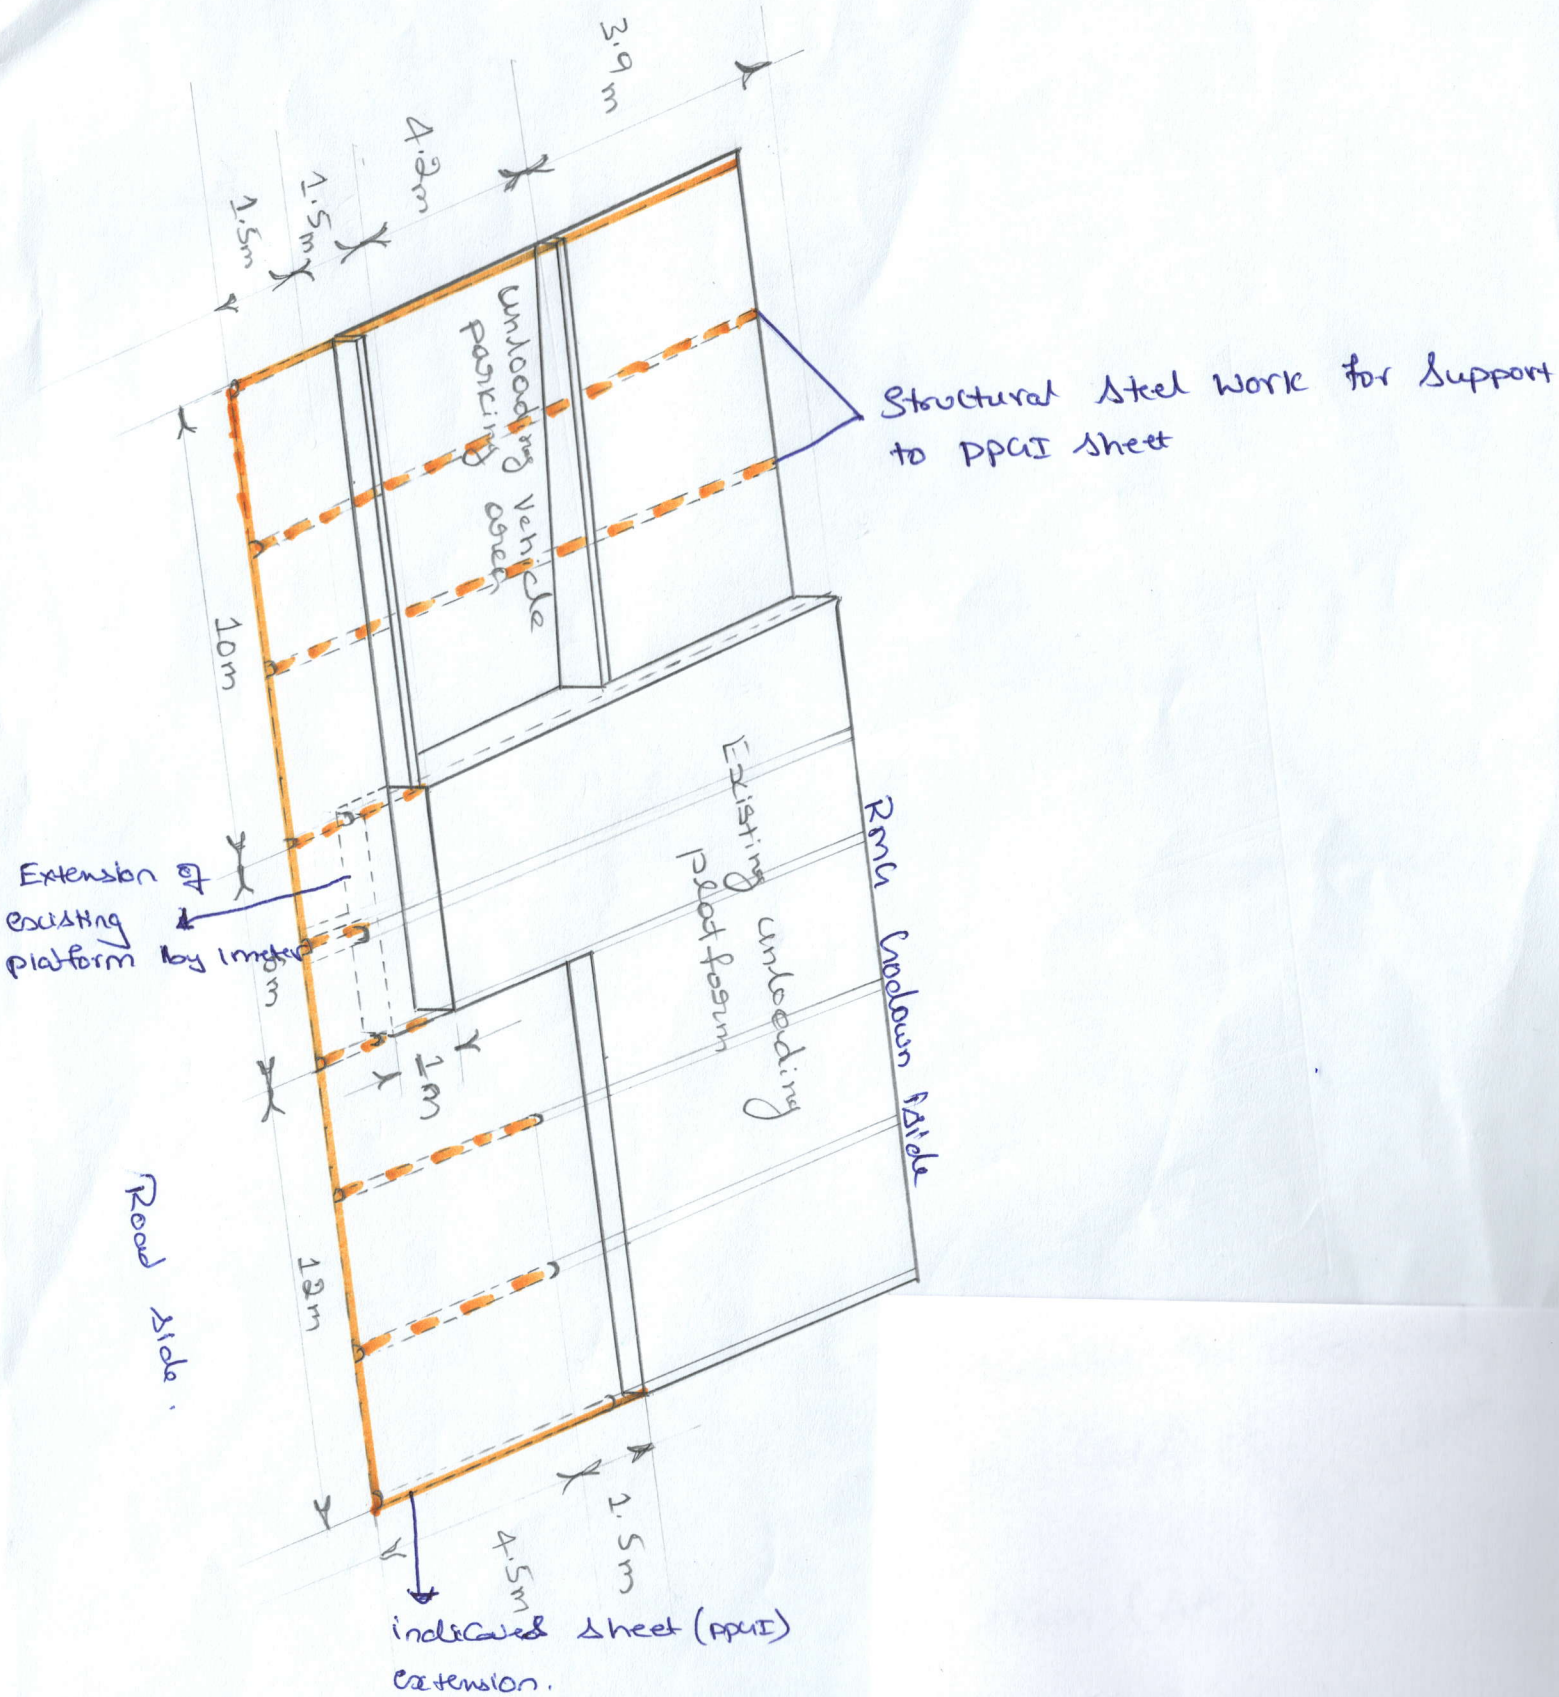 3.9 m
4.2m
1.5m
1.5m
unloading vehicle
parking area
Structural steel work for support
to PPGI sheet
10m
Existing unloading
platform
RMG Godown side
Extension of
existing
platform by 1 meter
1m
Road side.
12m
1.5m
4.5m
indicates sheet (PPGI)
extension.